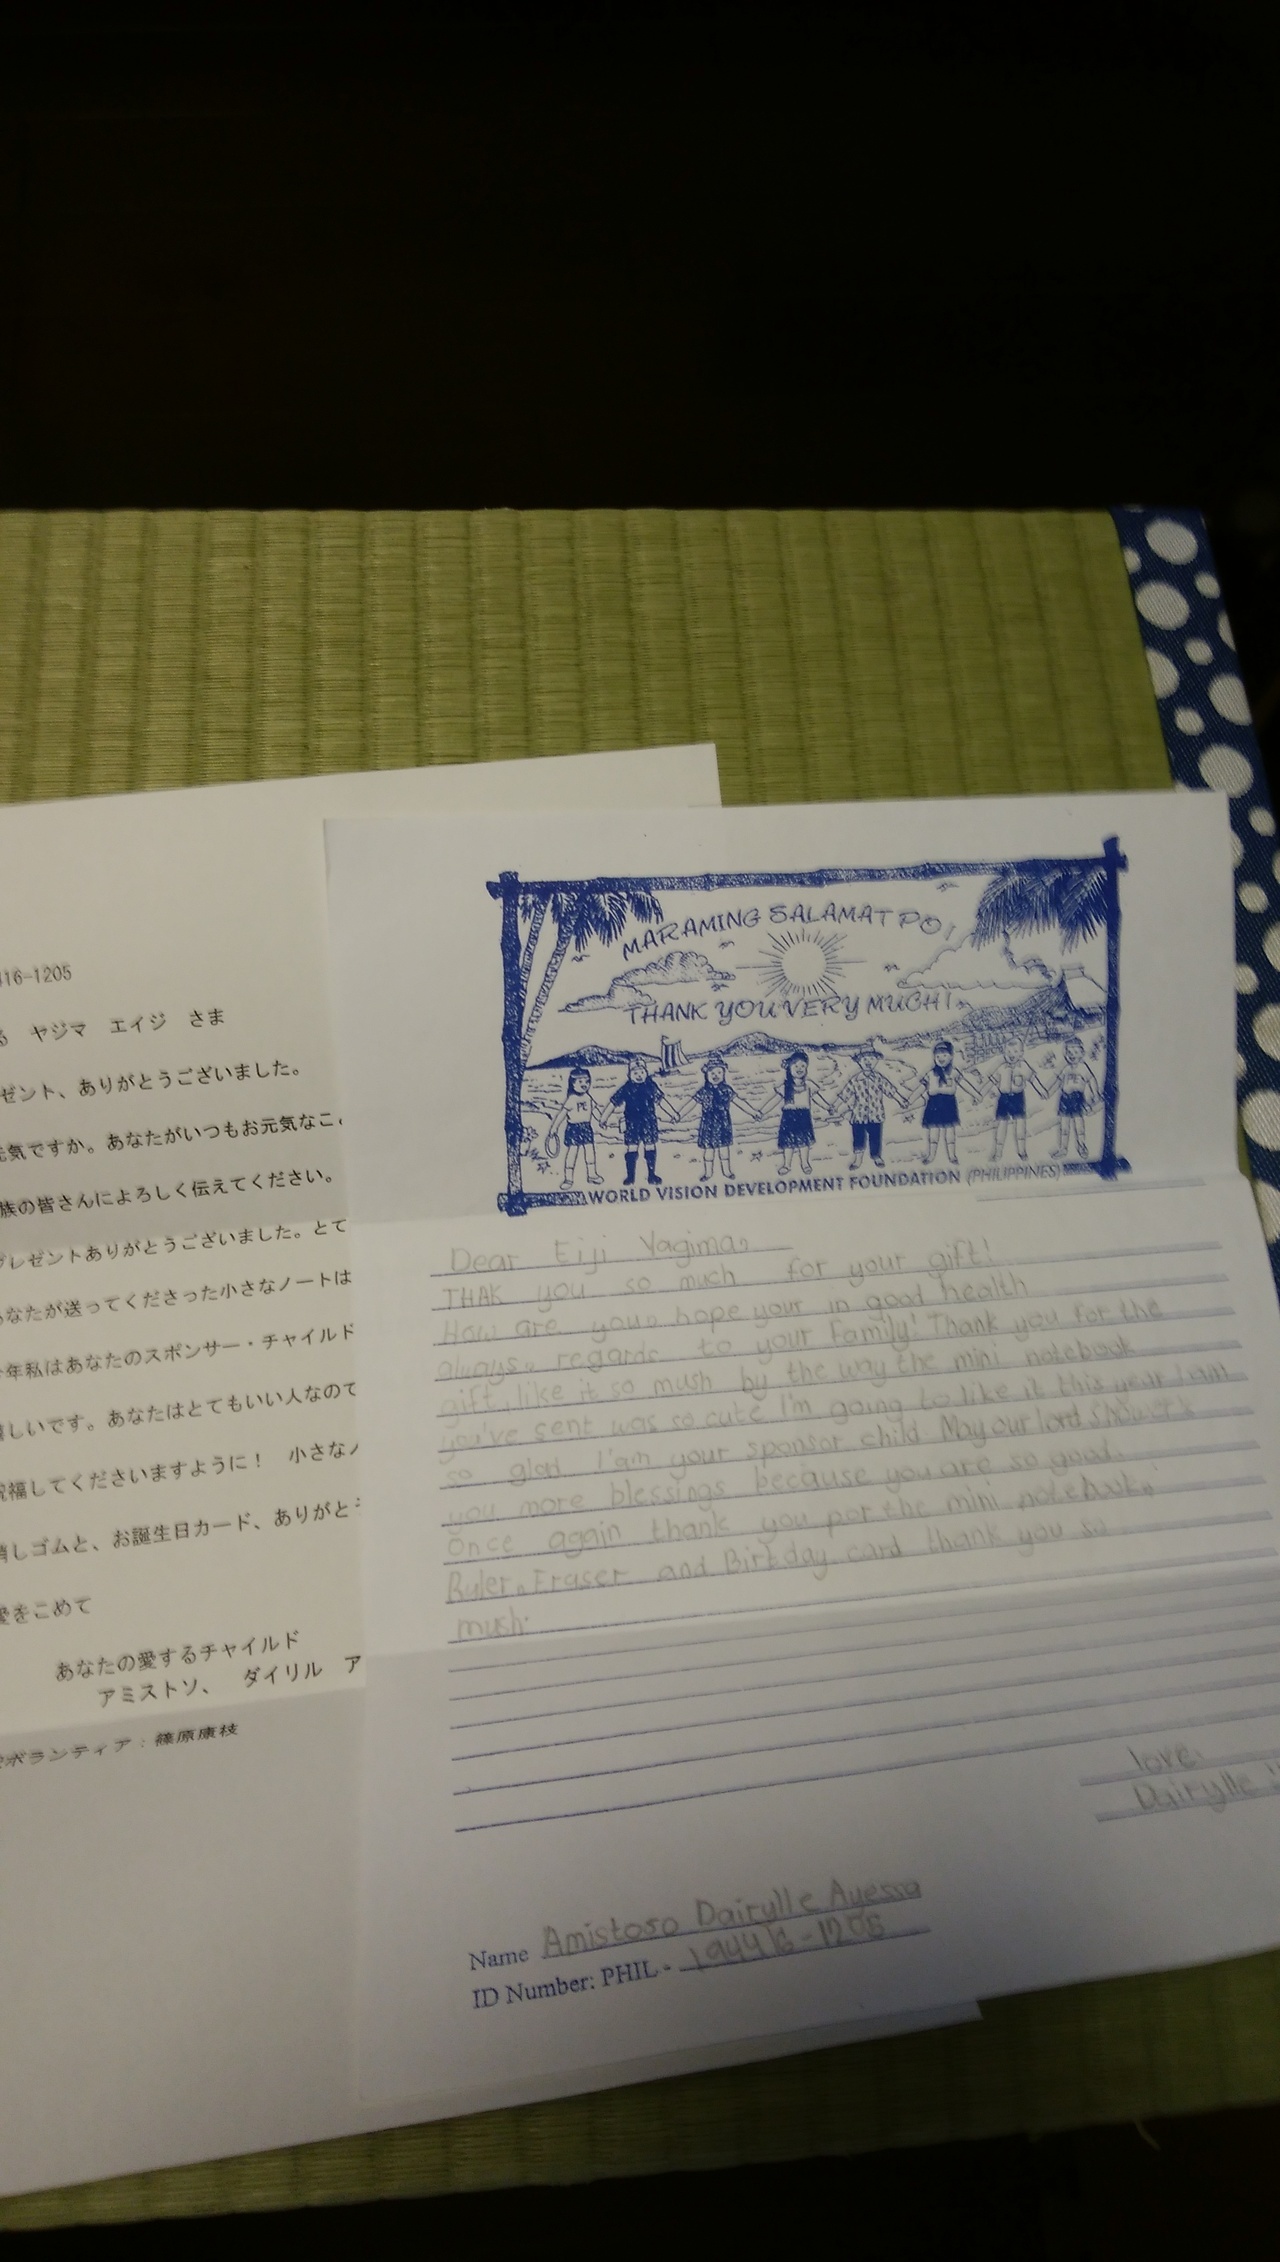 416-1205
ヤジマ エイジ さま
ゼント、ありがとうございました。
元気ですか。あなたがいつもお元気なこ
族の皆さんによろしく伝えてください。
プレゼントありがとうございました。とて
あなたが送ってくださった小さなノートは
今年私はあなたのスポンサー・チャイルド
嬉しいです。あなたはとてもいい人なので
祝福してくださいますように！ 小さなノ
消しゴムと、お誕生日カード、ありがと
愛をこめて
あなたの愛するチャイルド
アミストソ、 ダイリル ア
ボランティア：篠原康枝
MARAMING SALAMAT PO!
THANK YOU VERY MUCH!
WORLD VISION DEVELOPMENT FOUNDATION (PHILIPPINES)
Dear Eiji Yagima,
THAK you so much for your gift!
How are you, hope your in good health
always, regards to your family! Thank you for the
gift, like it so mush by the way the mini notebook
you've sent was so cute I'm going to like it this year I am
so glad I'am your sponsor child. May our lord showers
you more blessings because you are so good.
Once again thank you por the mini notebook,
Ruler, Eraser and Birtday card thank you so
mush.
love,
Dairylle
Name Amistoso Dairylle Ayessa
ID Number: PHIL - 194416-1205